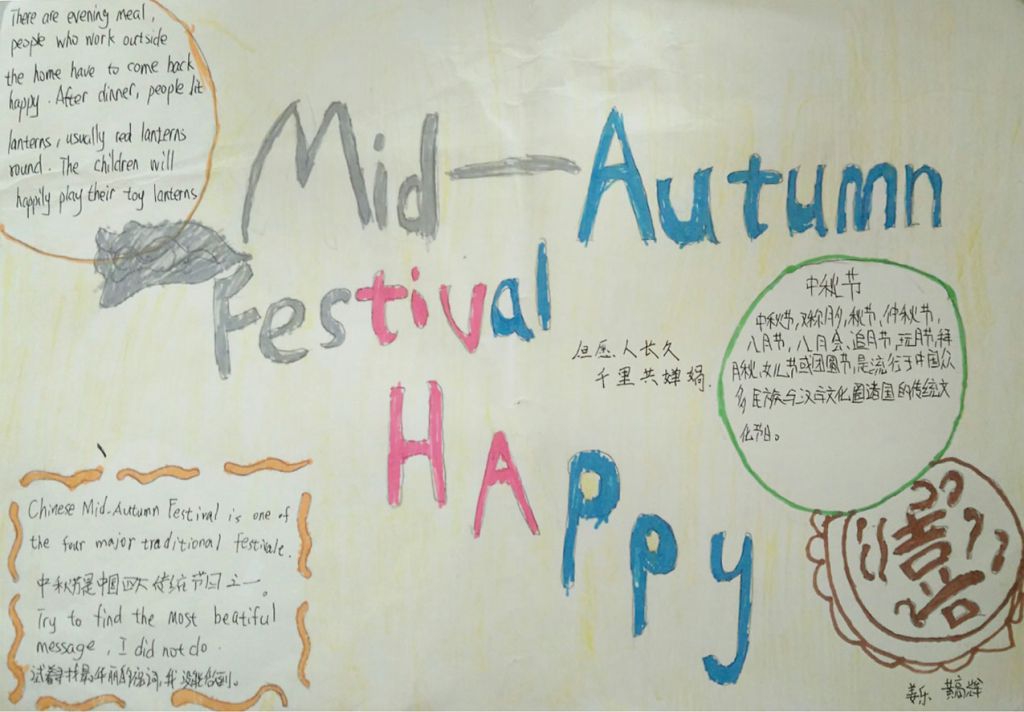 There are evening meal,
people who work outside
the home have to come back
happy. After dinner, people lit
lanterns, usually red lanterns
round. The children will
happily play their toy lanterns
Mid-Autumn
Festival
HAPPy
但愿人长久
千里共婵娟.
中秋节
中秋节,又称月夕,秋节,仲秋节,
八月节,八月会,追月节,玩月节,拜
月秋,女儿节或团圆节,是流行于中国众
多民族与汉字文化圈诸国的传统文
化节日。
Chinese Mid-Autumn Festival is one of
the four major traditional festivale.
中秋节是中国四大传统节日之一。
Try to find the most beatiful
message, I did not do.
试着寻找最华丽的
喜
姜乐